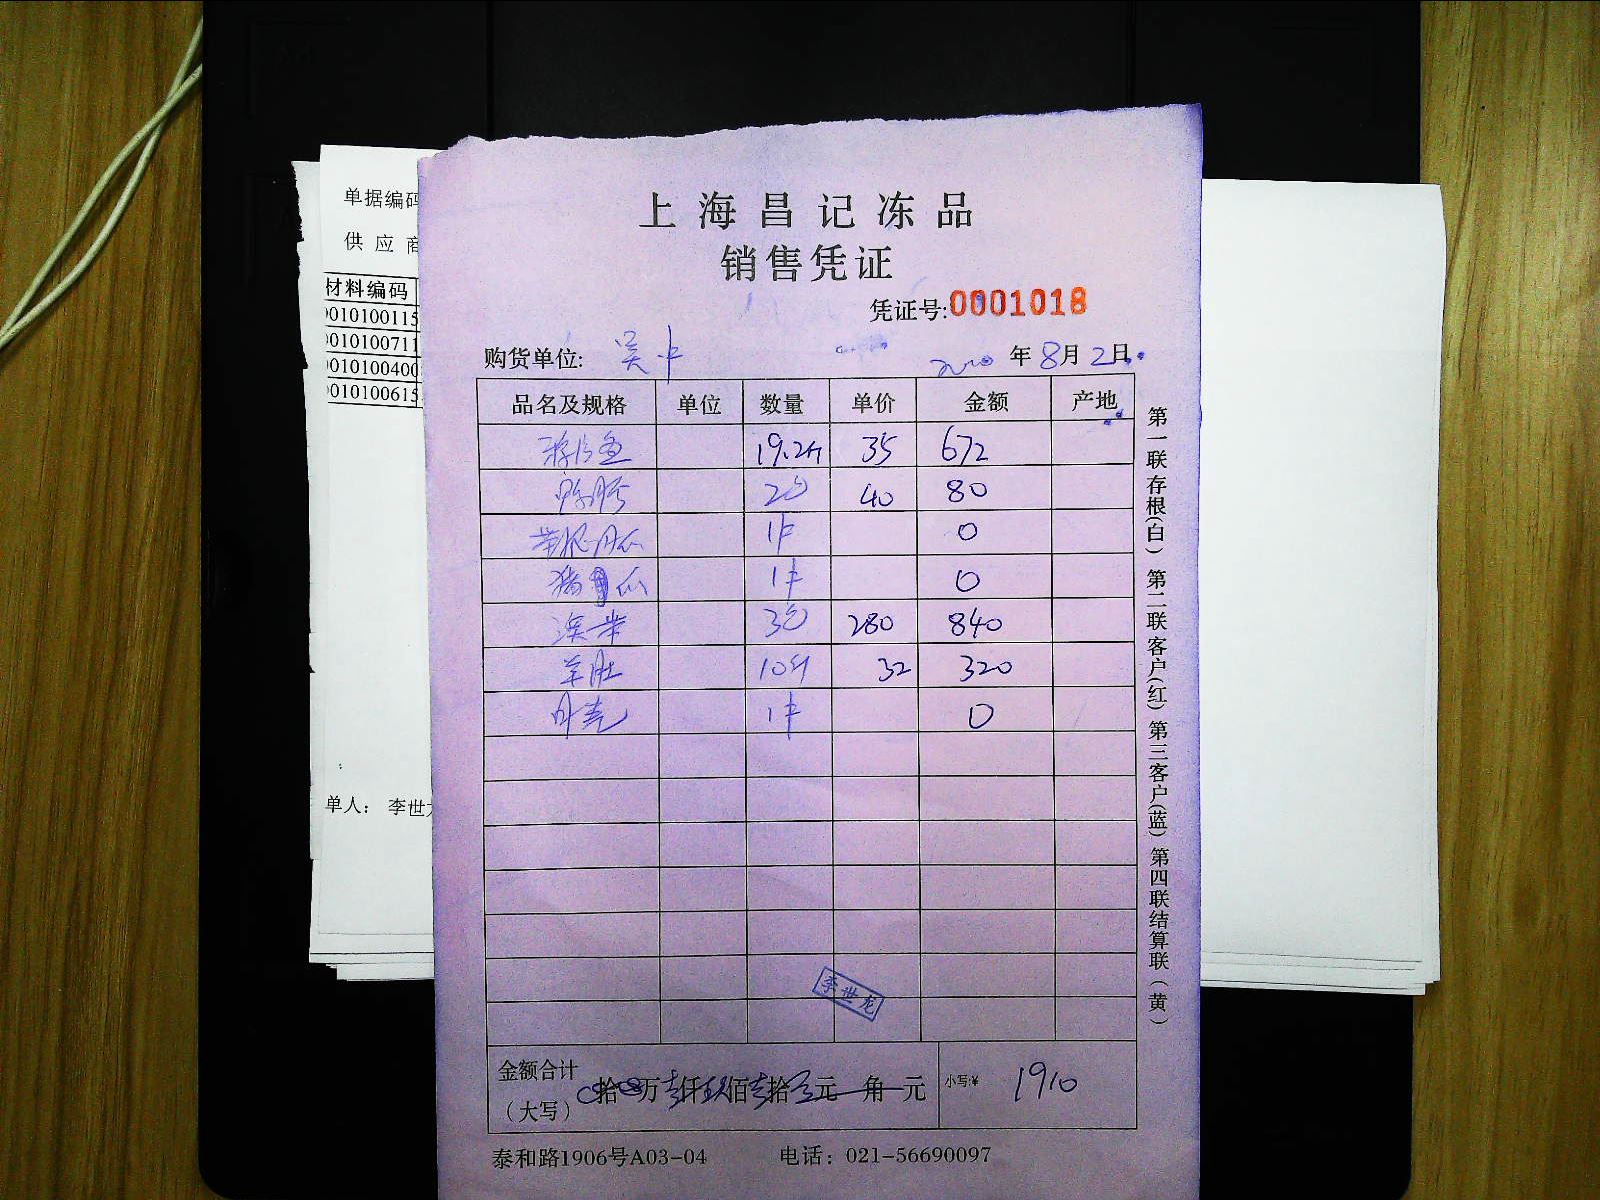 单据编码
供应商
材料编码
0010100115
0010100711
0010100400
0010100615
单人： 李世
上海昌记冻品
销售凭证
凭证号:0001018
购货单位: 吴 年8月2日
品名及规格 单位 数量 单价 金额 产地
19.2斤 35 672
2包 40 80
1件 0
1件 0
3包 280 840
羊肚 10斤 32 320
1件 0
李世龙
金额合计
（大写） 拾 万壹仟玖佰壹拾 元 角 元 小写:¥ 1910
泰和路1906号A03-04 电话：021-56690097
第一联存根(白) 第二联客户(红) 第三客户(蓝) 第四联结算联(黄)